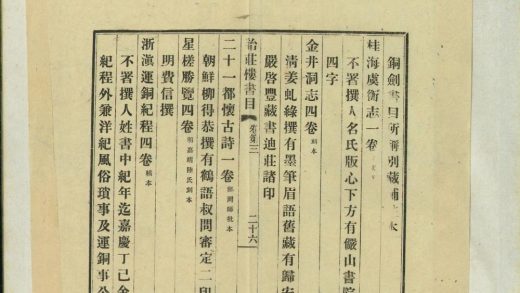 銅劍書
桂海虞衡志一卷
不署撰人名氏版心下方有儼山書院
四字
金井洞志四卷刻本
清姜虬緑撰有墨筆眉語舊藏有歸安
嚴啓豐藏書迪莊諸印
詒莊樓書目 卷三 二十六
二十一都懷古詩一卷
朝鮮柳得恭撰有鶴語叔問審定二印
星槎勝覽四卷明嘉靖陸氏刻本
明費信撰
浙滇運銅紀程四卷稿本
不署撰人姓書中紀年迄嘉慶丁己
紀程外兼洋紀風俗瑣事及運銅事